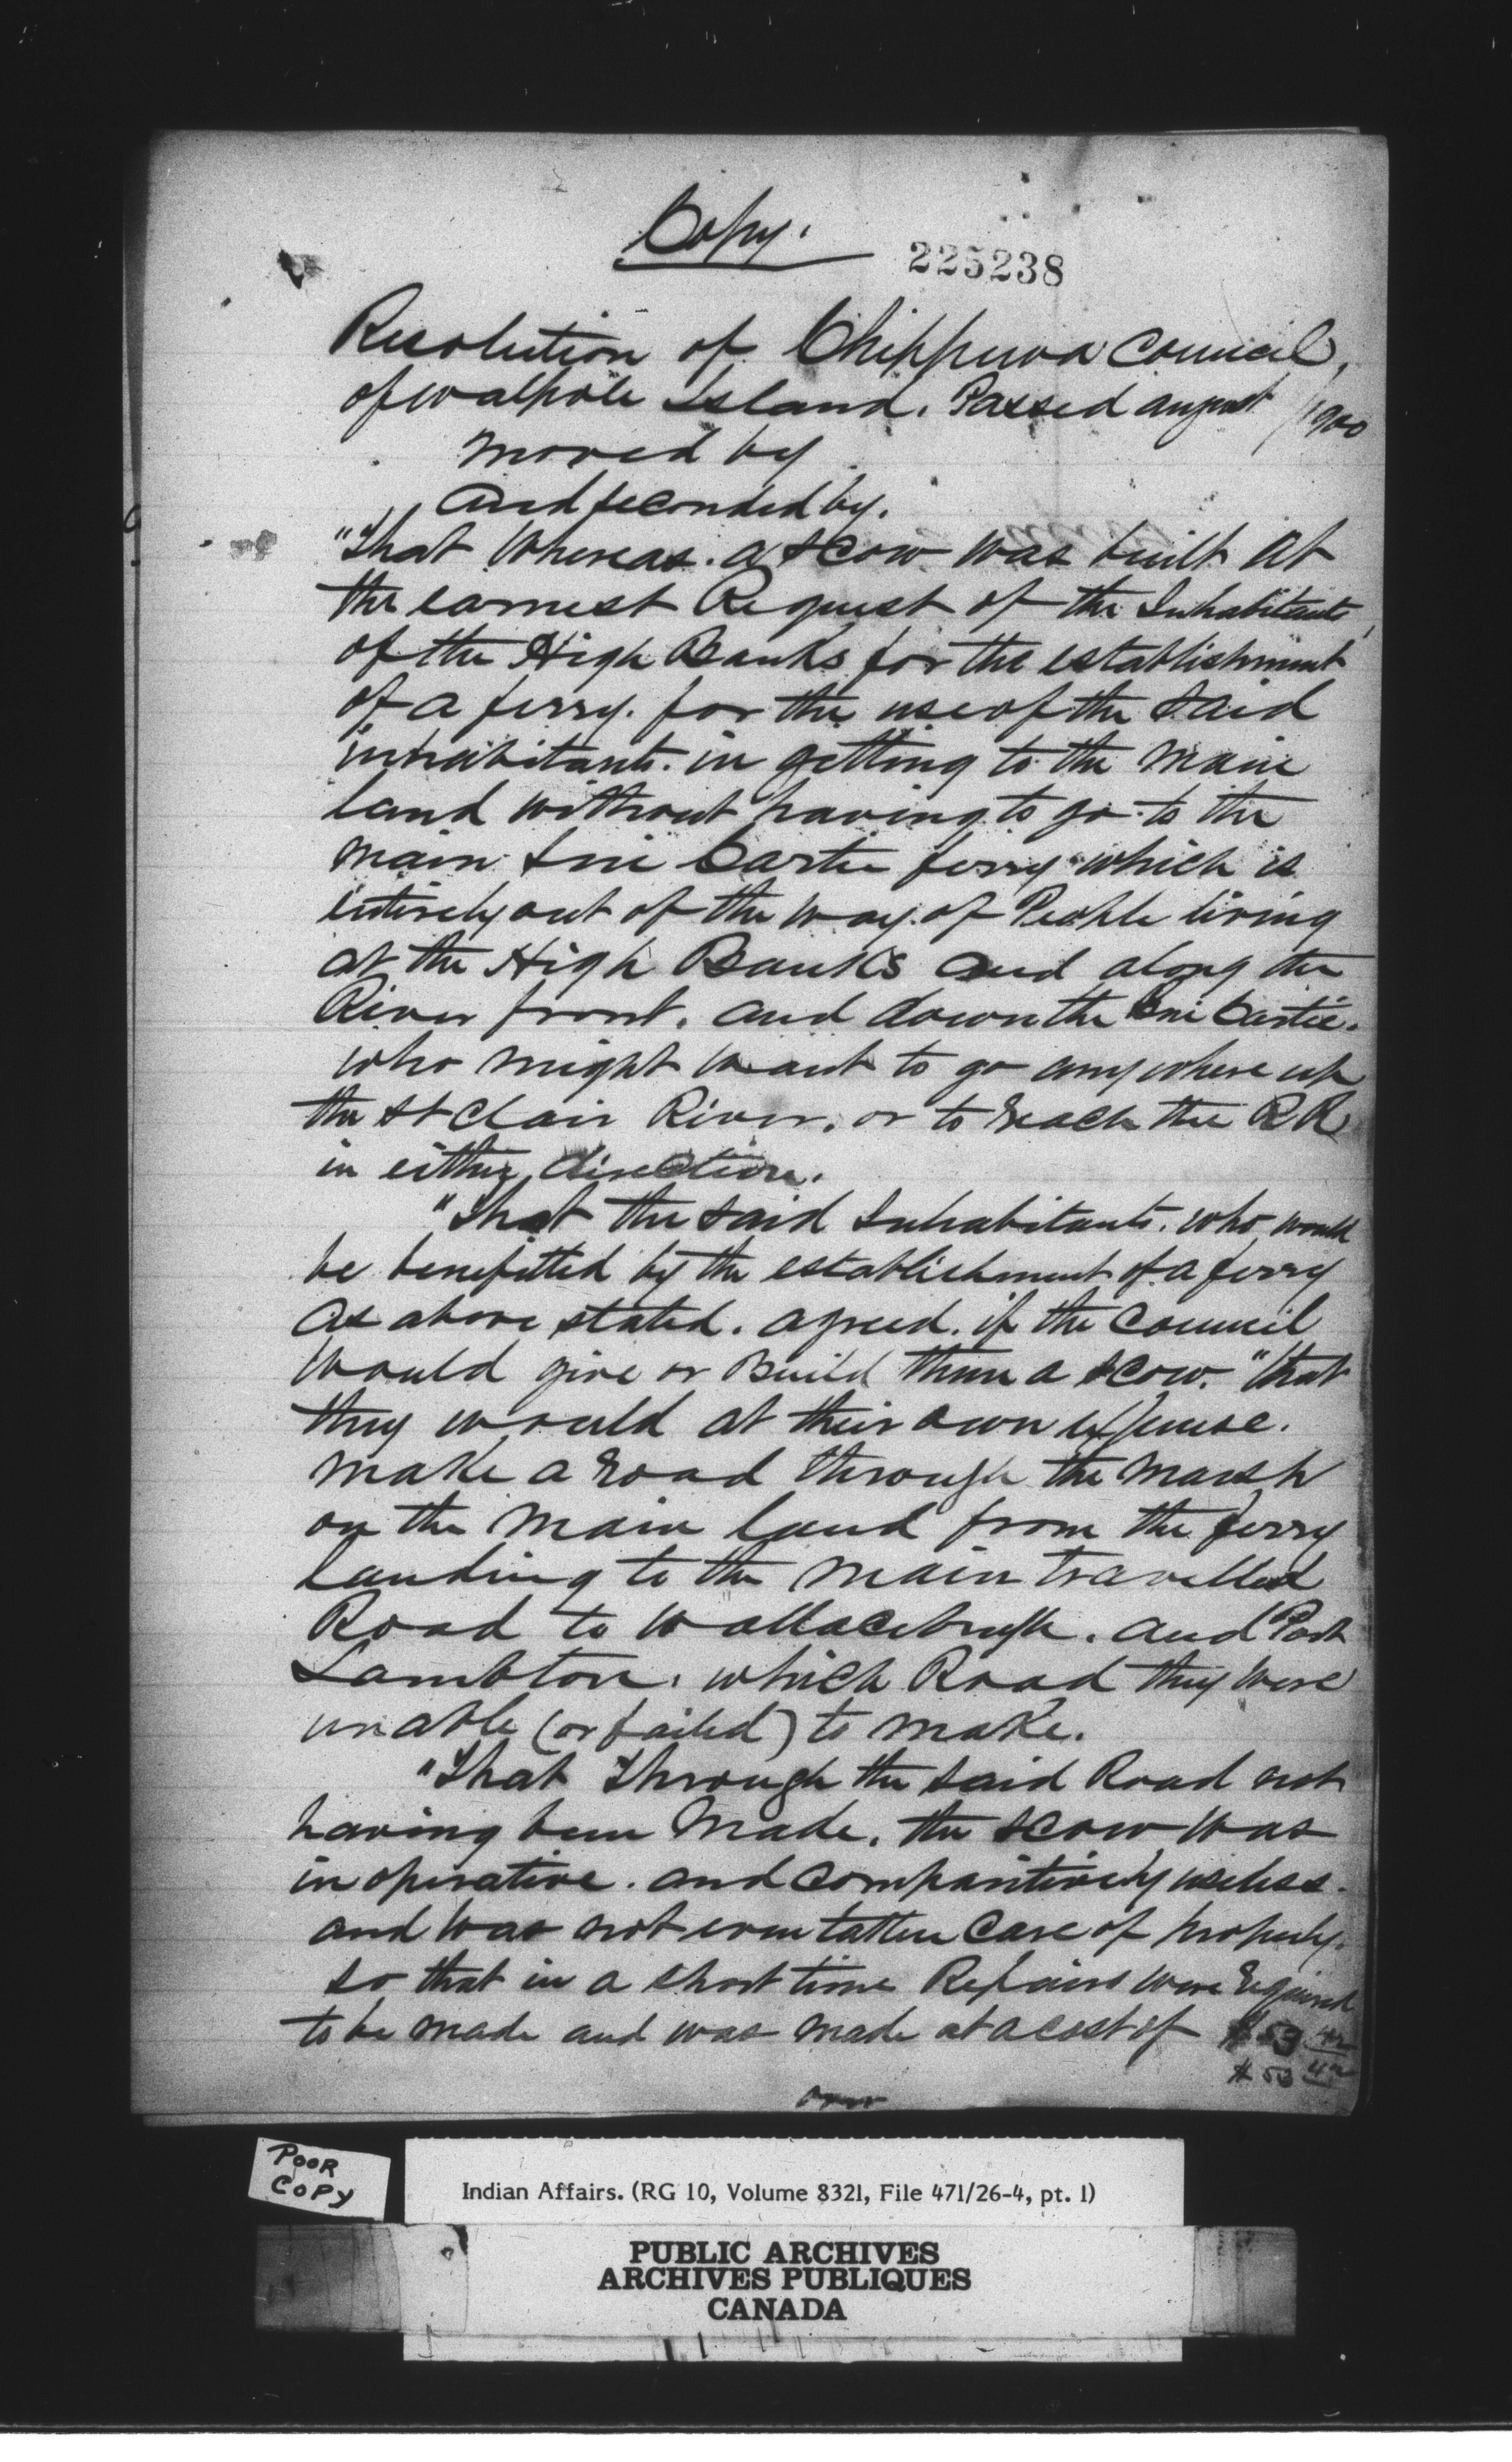 Copy.
225238
Resolution of Chippewa Council,
of walpole Island. Passed august /1900
moved by
and seconded by.
"That Whereas. a scow was built at
the earnest Request of the Inhabitants,
of the High Banks for the establishment
of a ferry. for the use of the said
inhabitants. in getting to the main
land without having to go to the
main Cartie ferry which is
entirely out of the way of People living
at the High Banks and along the
River front. and down the Cartie.
who might want to go anywhere up
the St Clair River. or to reach the RR
in either direction.
"That the said Inhabitants. who would
be benefitted by the establishment of a ferry
as above stated. agreed. if the council
would give or Build them a scow. "that
they would at their own expense.
make a road through the marsh
on the main land from the ferry
landing to the main travelled
Road to Wallaceburgh. and Port
Lambton. which Road they were
unable (or failed) to make.
"That through the said Road not
having been made. the scow was
in operative. and comparitively useless.
and was not even taken care of properly.
so that in a short time Repairs were required
to be made and was made at a cost of $53
$53
POOR
COPY
Indian Affairs. (RG 10, Volume 8321, File 471/26-4, pt. 1)
PUBLIC ARCHIVES
ARCHIVES PUBLIQUES
CANADA